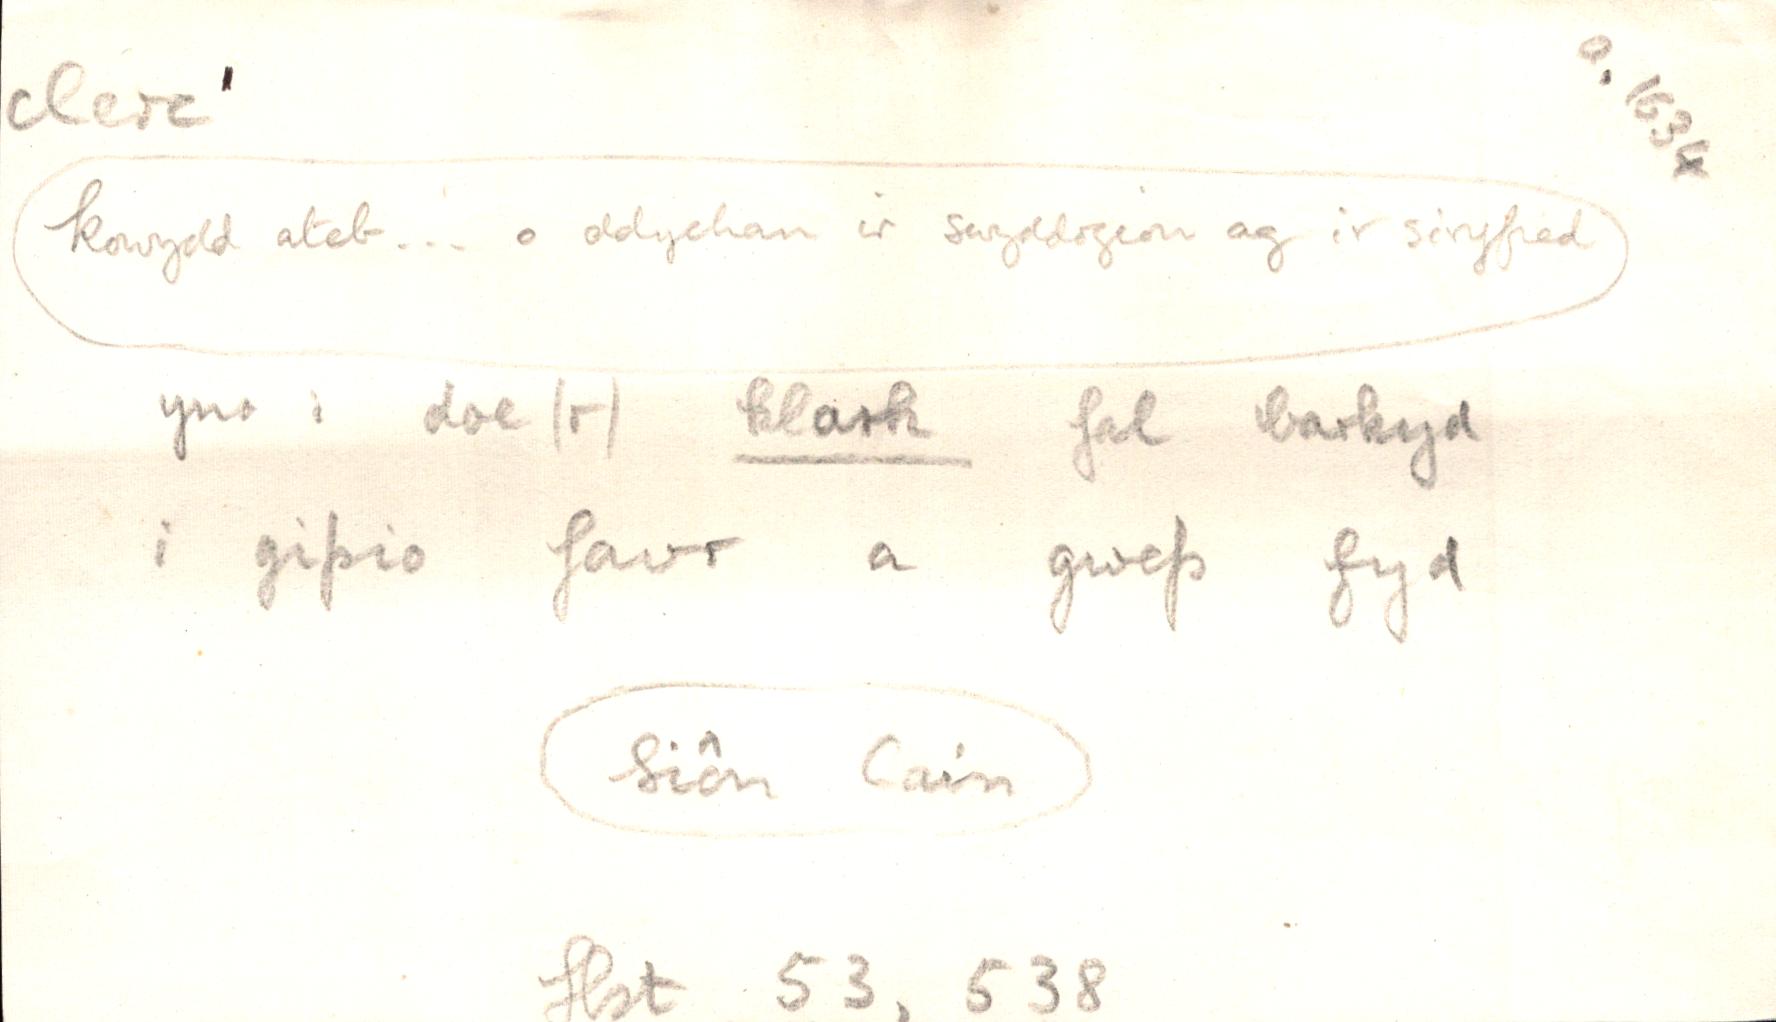 clerc'
a. 1634
kowydd ateb ... o ddychan ir swyddogion ag ir siryfied
yno i doe(r) klark fal barkyd
i gipio fawr a gwep fyd
Siôn Cain
Llst 53, 538